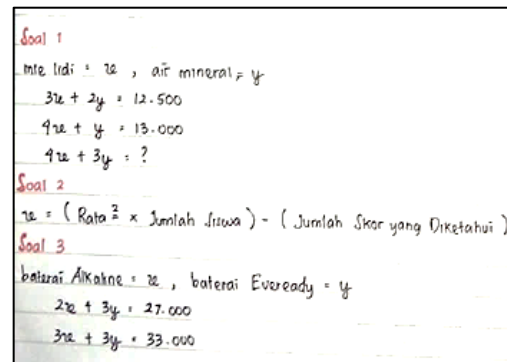 Soal 1
mie lidi = x , air mineral = y
3x + 2y = 12.500
4x + y = 13.000
4x + 3y = ?
Soal 2
x = ( Rata² × Jumlah Siswa ) - ( Jumlah Skor yang Diketahui )
Soal 3
baterai Alkaline = x , baterai Eveready = y
2x + 3y = 27.000
3x + 3y = 33.000